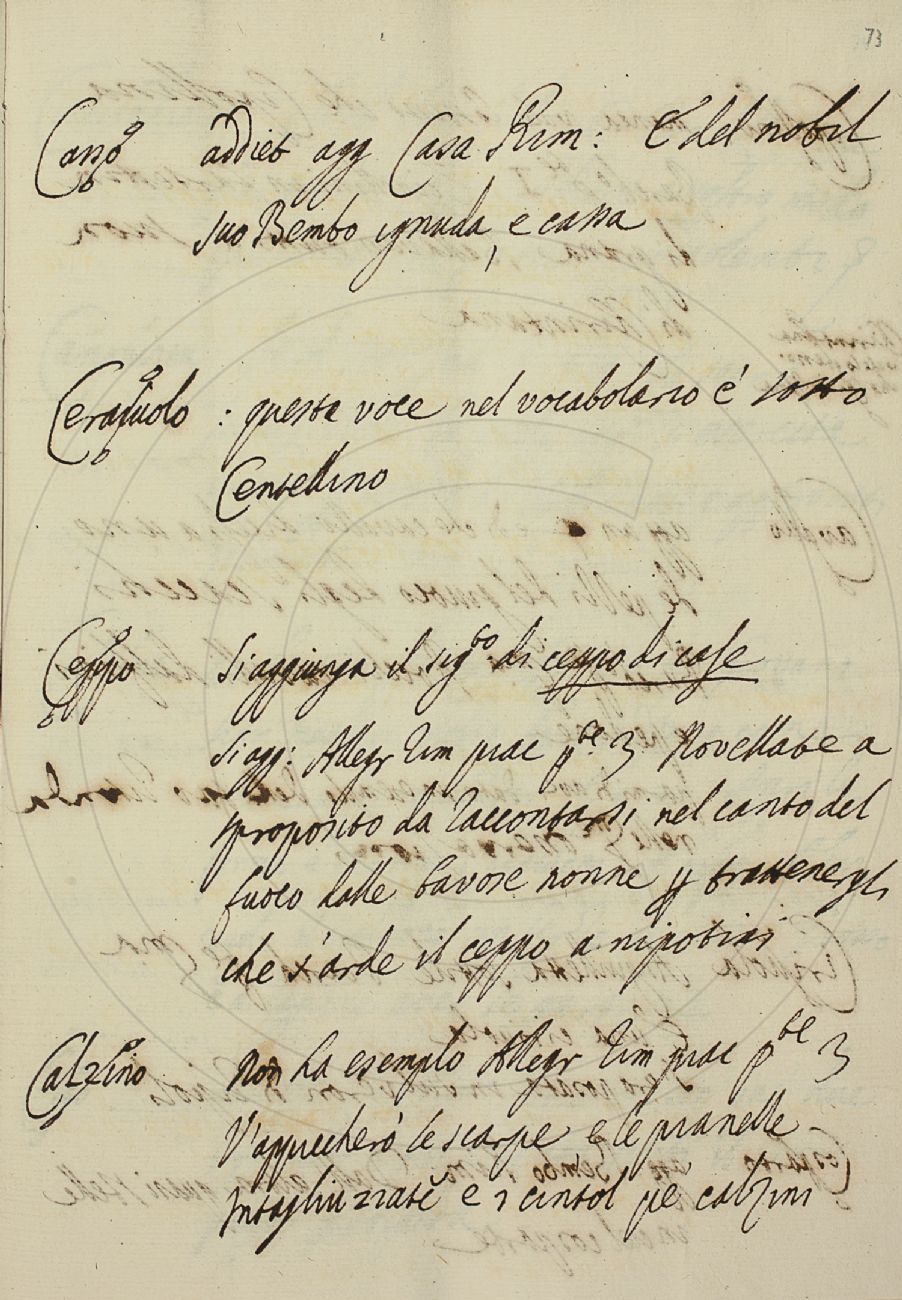 73
Casso addiet agg Casa Rim: E del nobil
suo Bembo ignuda, e cassa
Cerajuolo : questa voce nel vocabolario é sotto
Centellino
Ceppo Si aggiunga il sig.to di ceppo di case
Si agg: Allegr Rim piac p.te 3 Novellate a
sproposito da raccontarsi nel canto del
fuoco dalle bavose nonne p trattenergli
che s'arde il ceppo a nipotini
Calzino Non ha esemplo Allegr Rim piac p.te 3
V'appiccherò le scarpe e le pianelle
Intagliuzzate e i cintol pe calzini